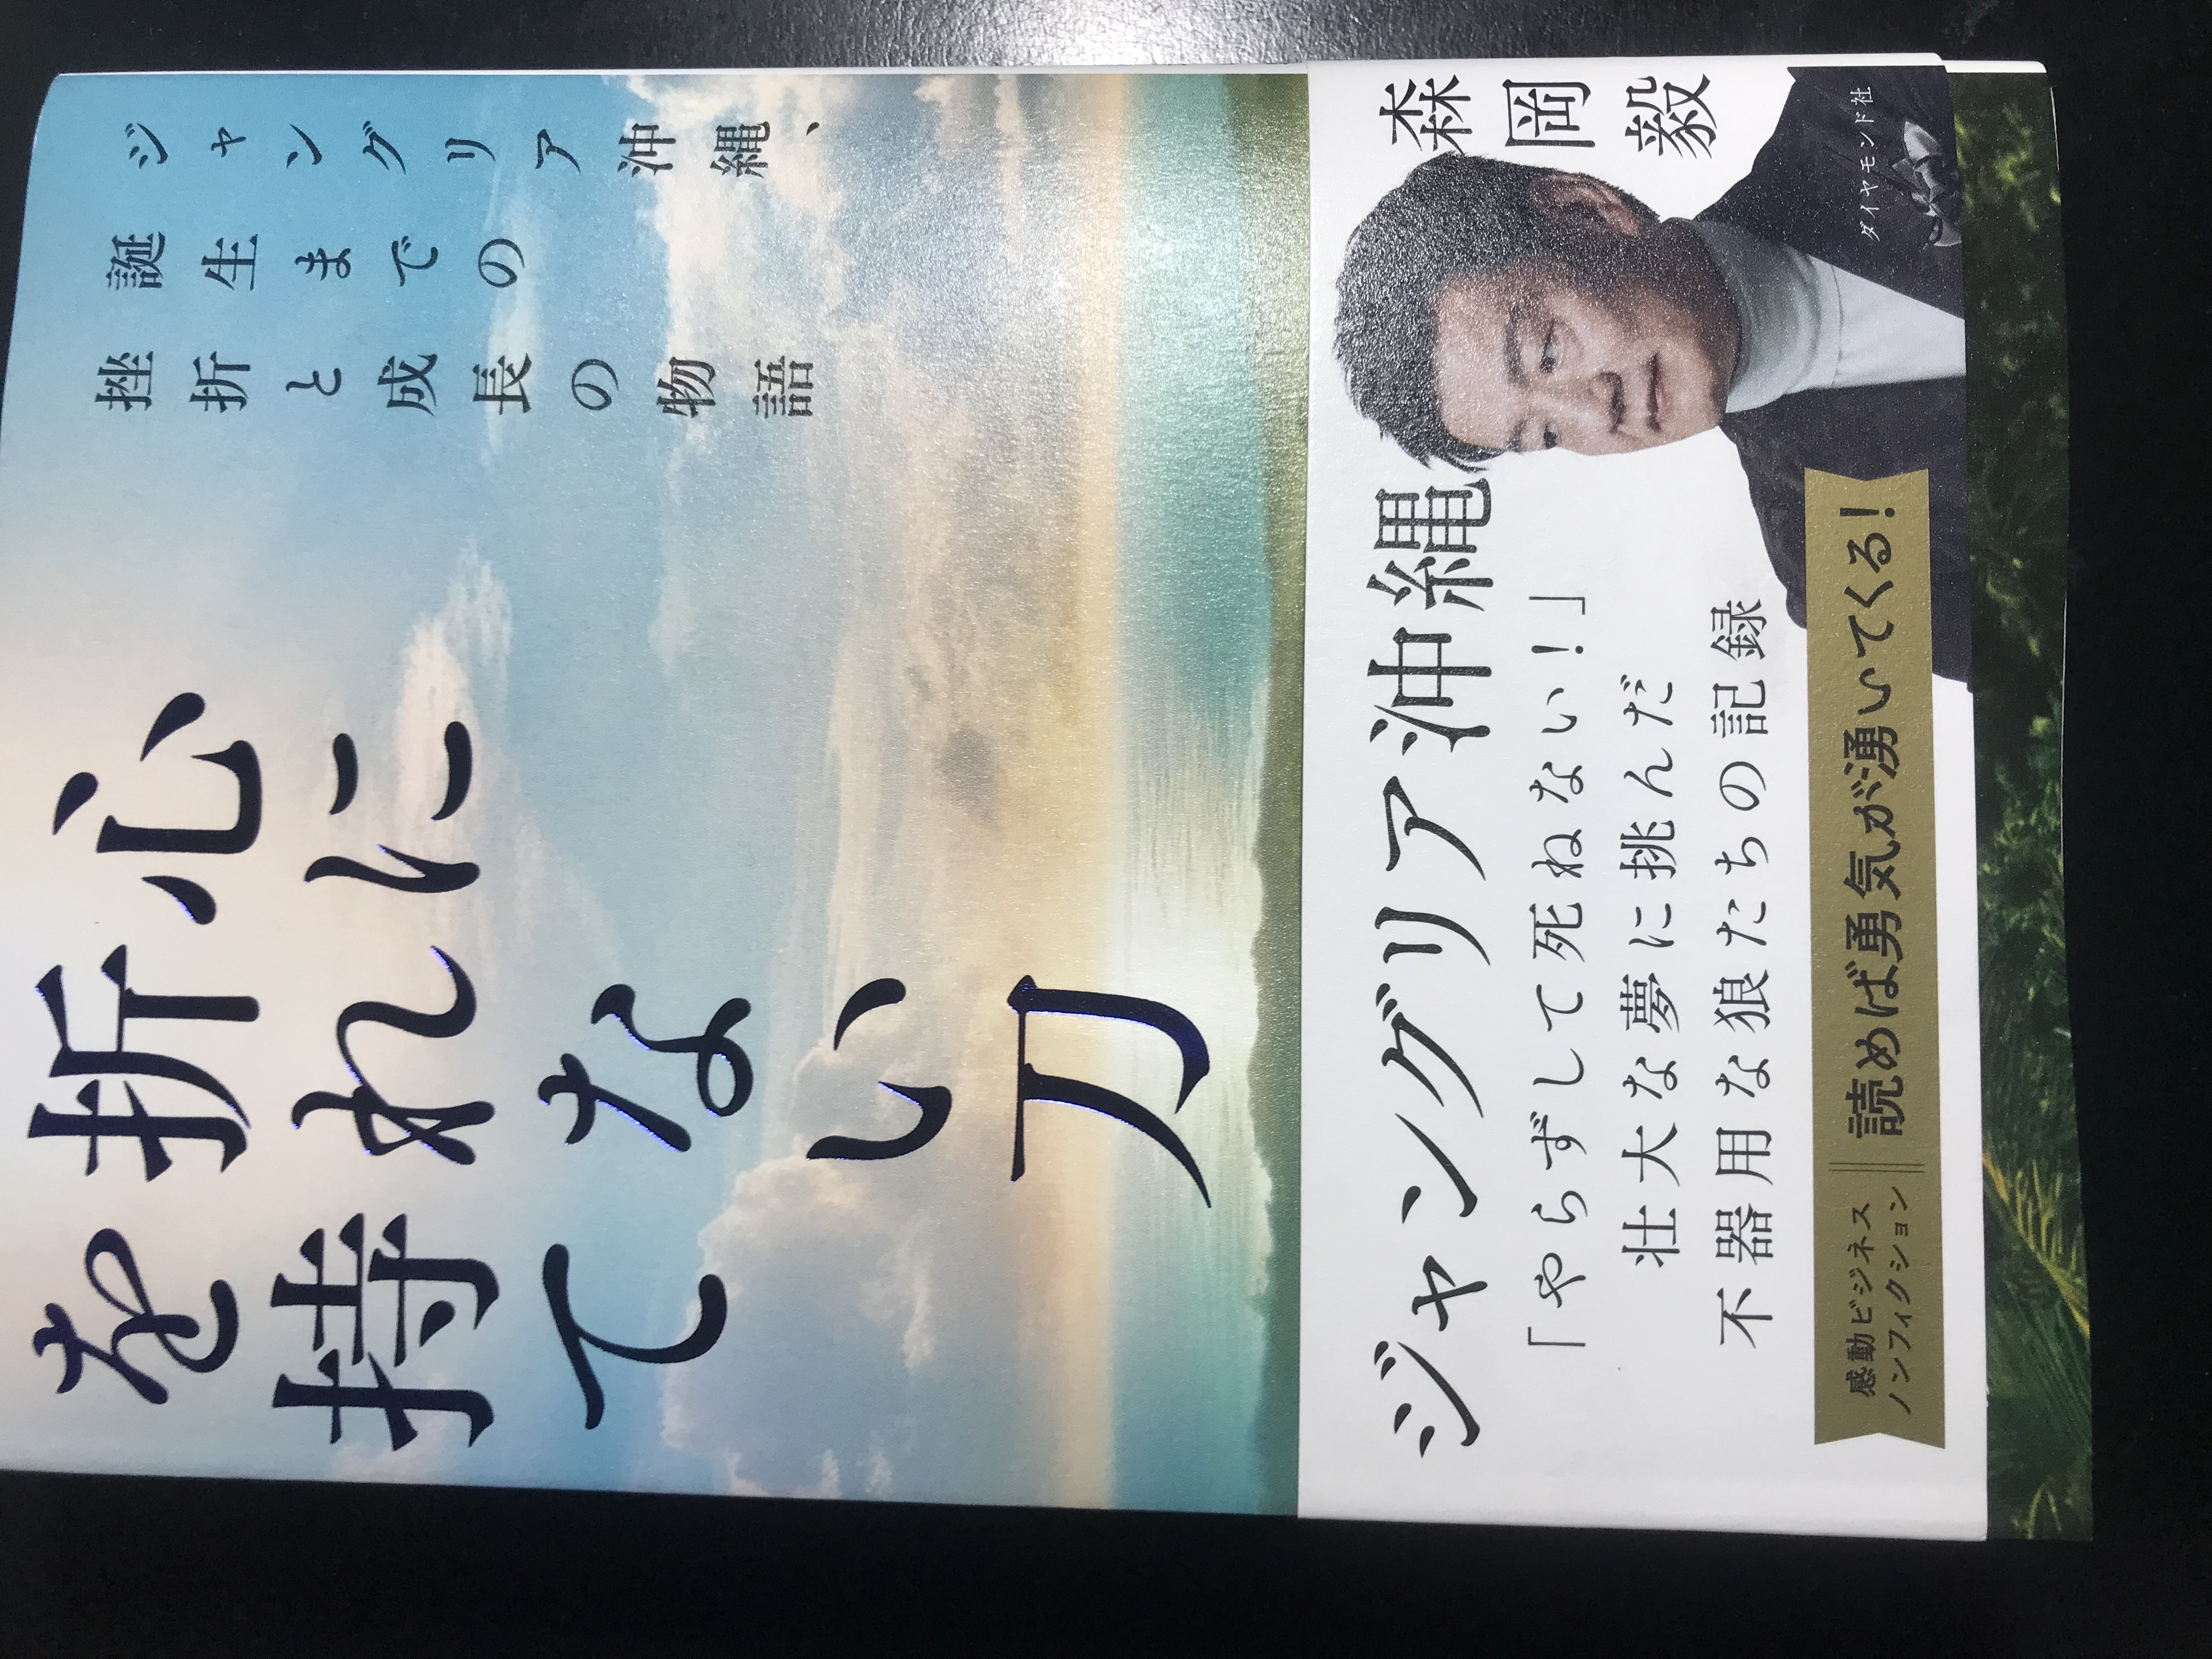 ジャングリア沖縄、
誕生までの
挫折と成長の物語
心に
折れない刀
を持て
森岡毅
ダイヤモンド社
ジャングリア沖縄
「やらずして死ねない！」
壮大な夢に挑んだ
不器用な狼たちの記録
感動ビジネス
ノンフィクション
読めば勇気が湧いてくる！